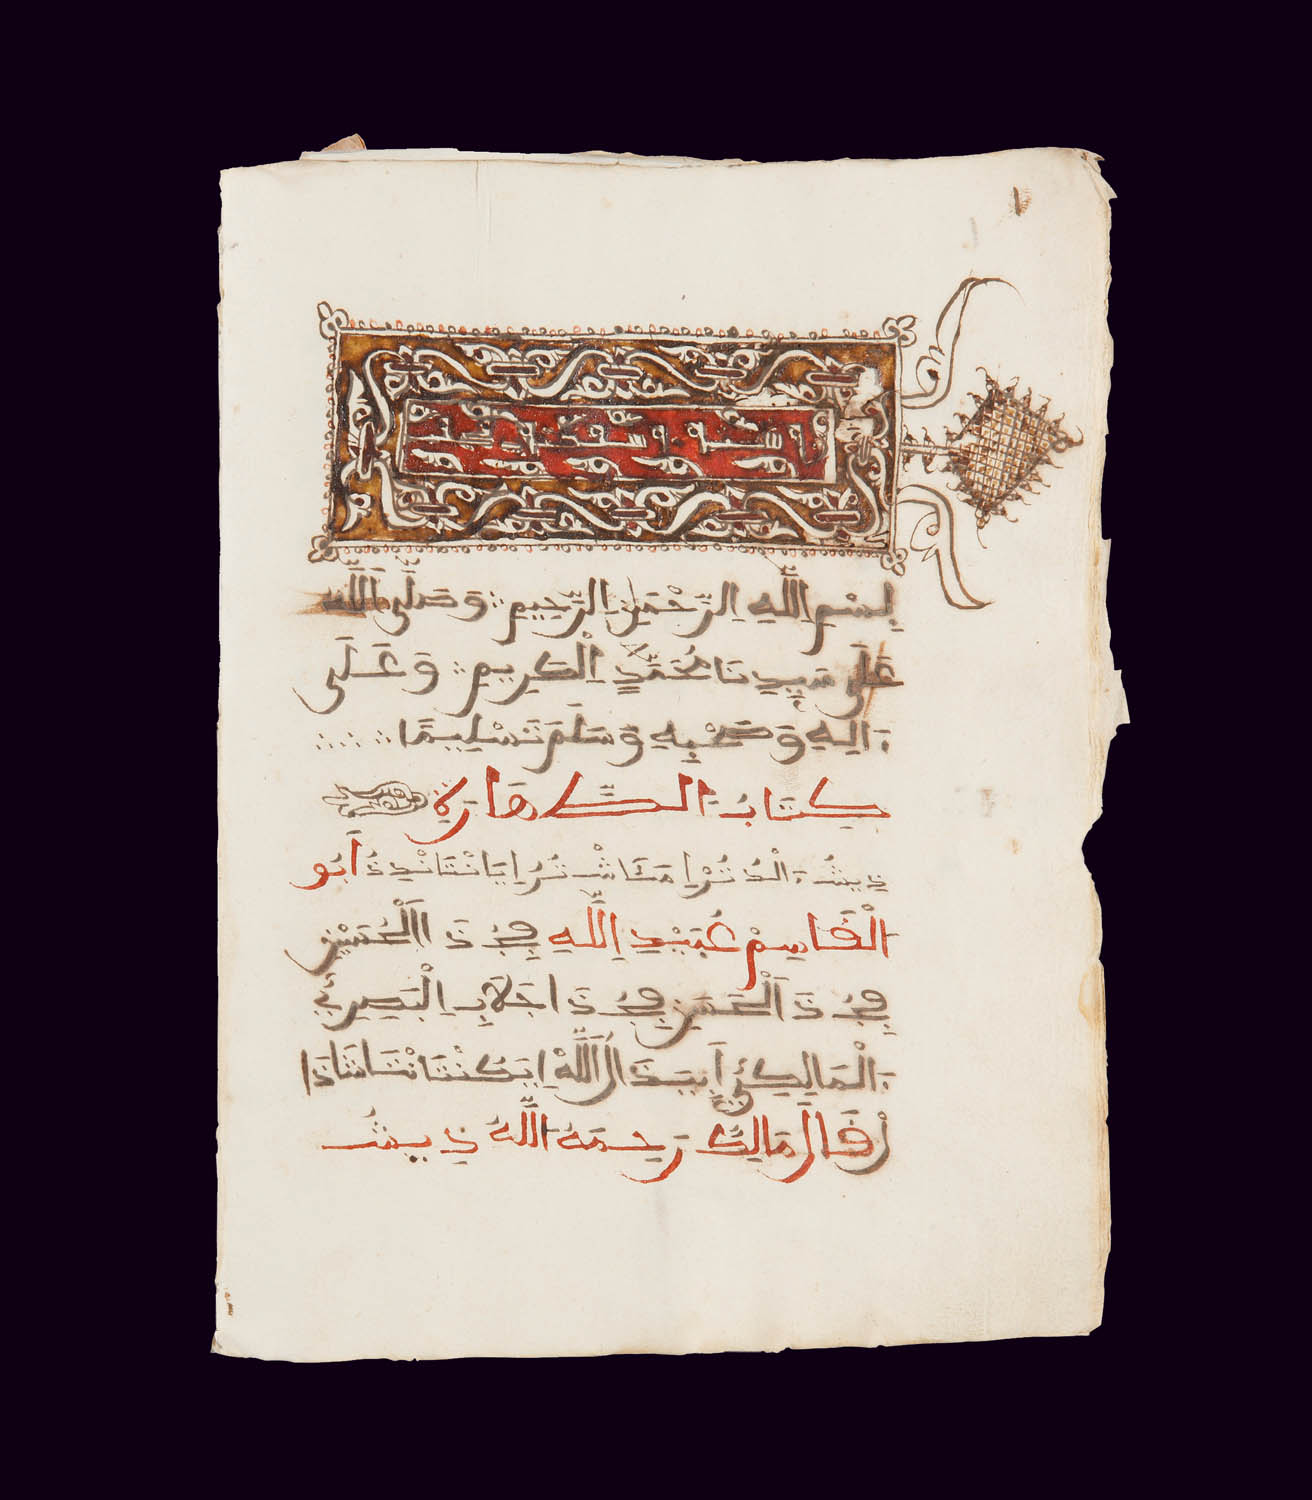 بِسْمِ اِللَّهِ اِلرَّحْمَنِ اِلرَّحِيمِ وَصَلَّى اَللَّهُ
عَلَى سَيِدِنَا مُحَمَّدٍ اِلْكَرِيمِ وَعَلَى
ءَالِهِ وَصَحْبِهِ وَسَلَمَ تَسْلِيمًا
كِتَابُ اَلطَّهَارَةِ
ذِيشُ ءَالْدُتُوْر اَبُو
الْقَاسِمْ عُبَيْدِ اِللَّهِ فِجُ ذَ اَلْحُسَيْنِ
فِجُ ذَ اَلْحَسَنِ فِجُ ذَ اجَلاَبِ اِلْبَصِرِيُّ
ءَالْمَالِكِيُّ اَللَّهْ
قَالَ مَالِكٌ رَحِمَهُ اَللَّهُ ذِيشُ